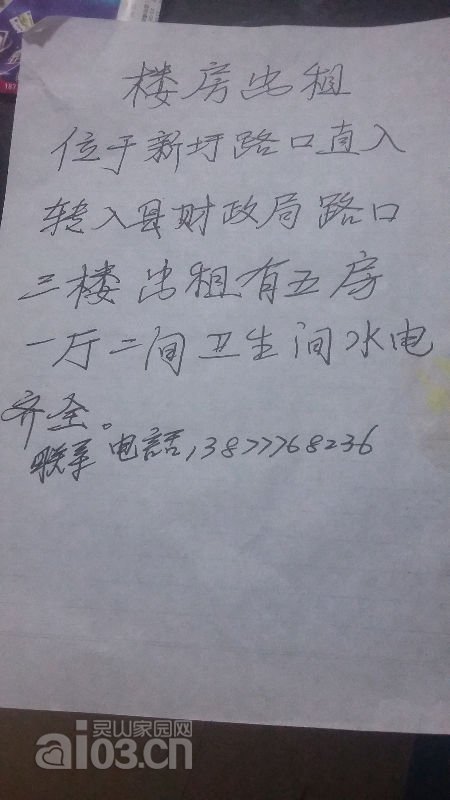 楼房出租
位于新圩路口直入
转入县财政局路口
三楼出租有五房
一厅二间卫生间水电
齐全。
联系电話,13877768236
灵山家园网
ai03.cn